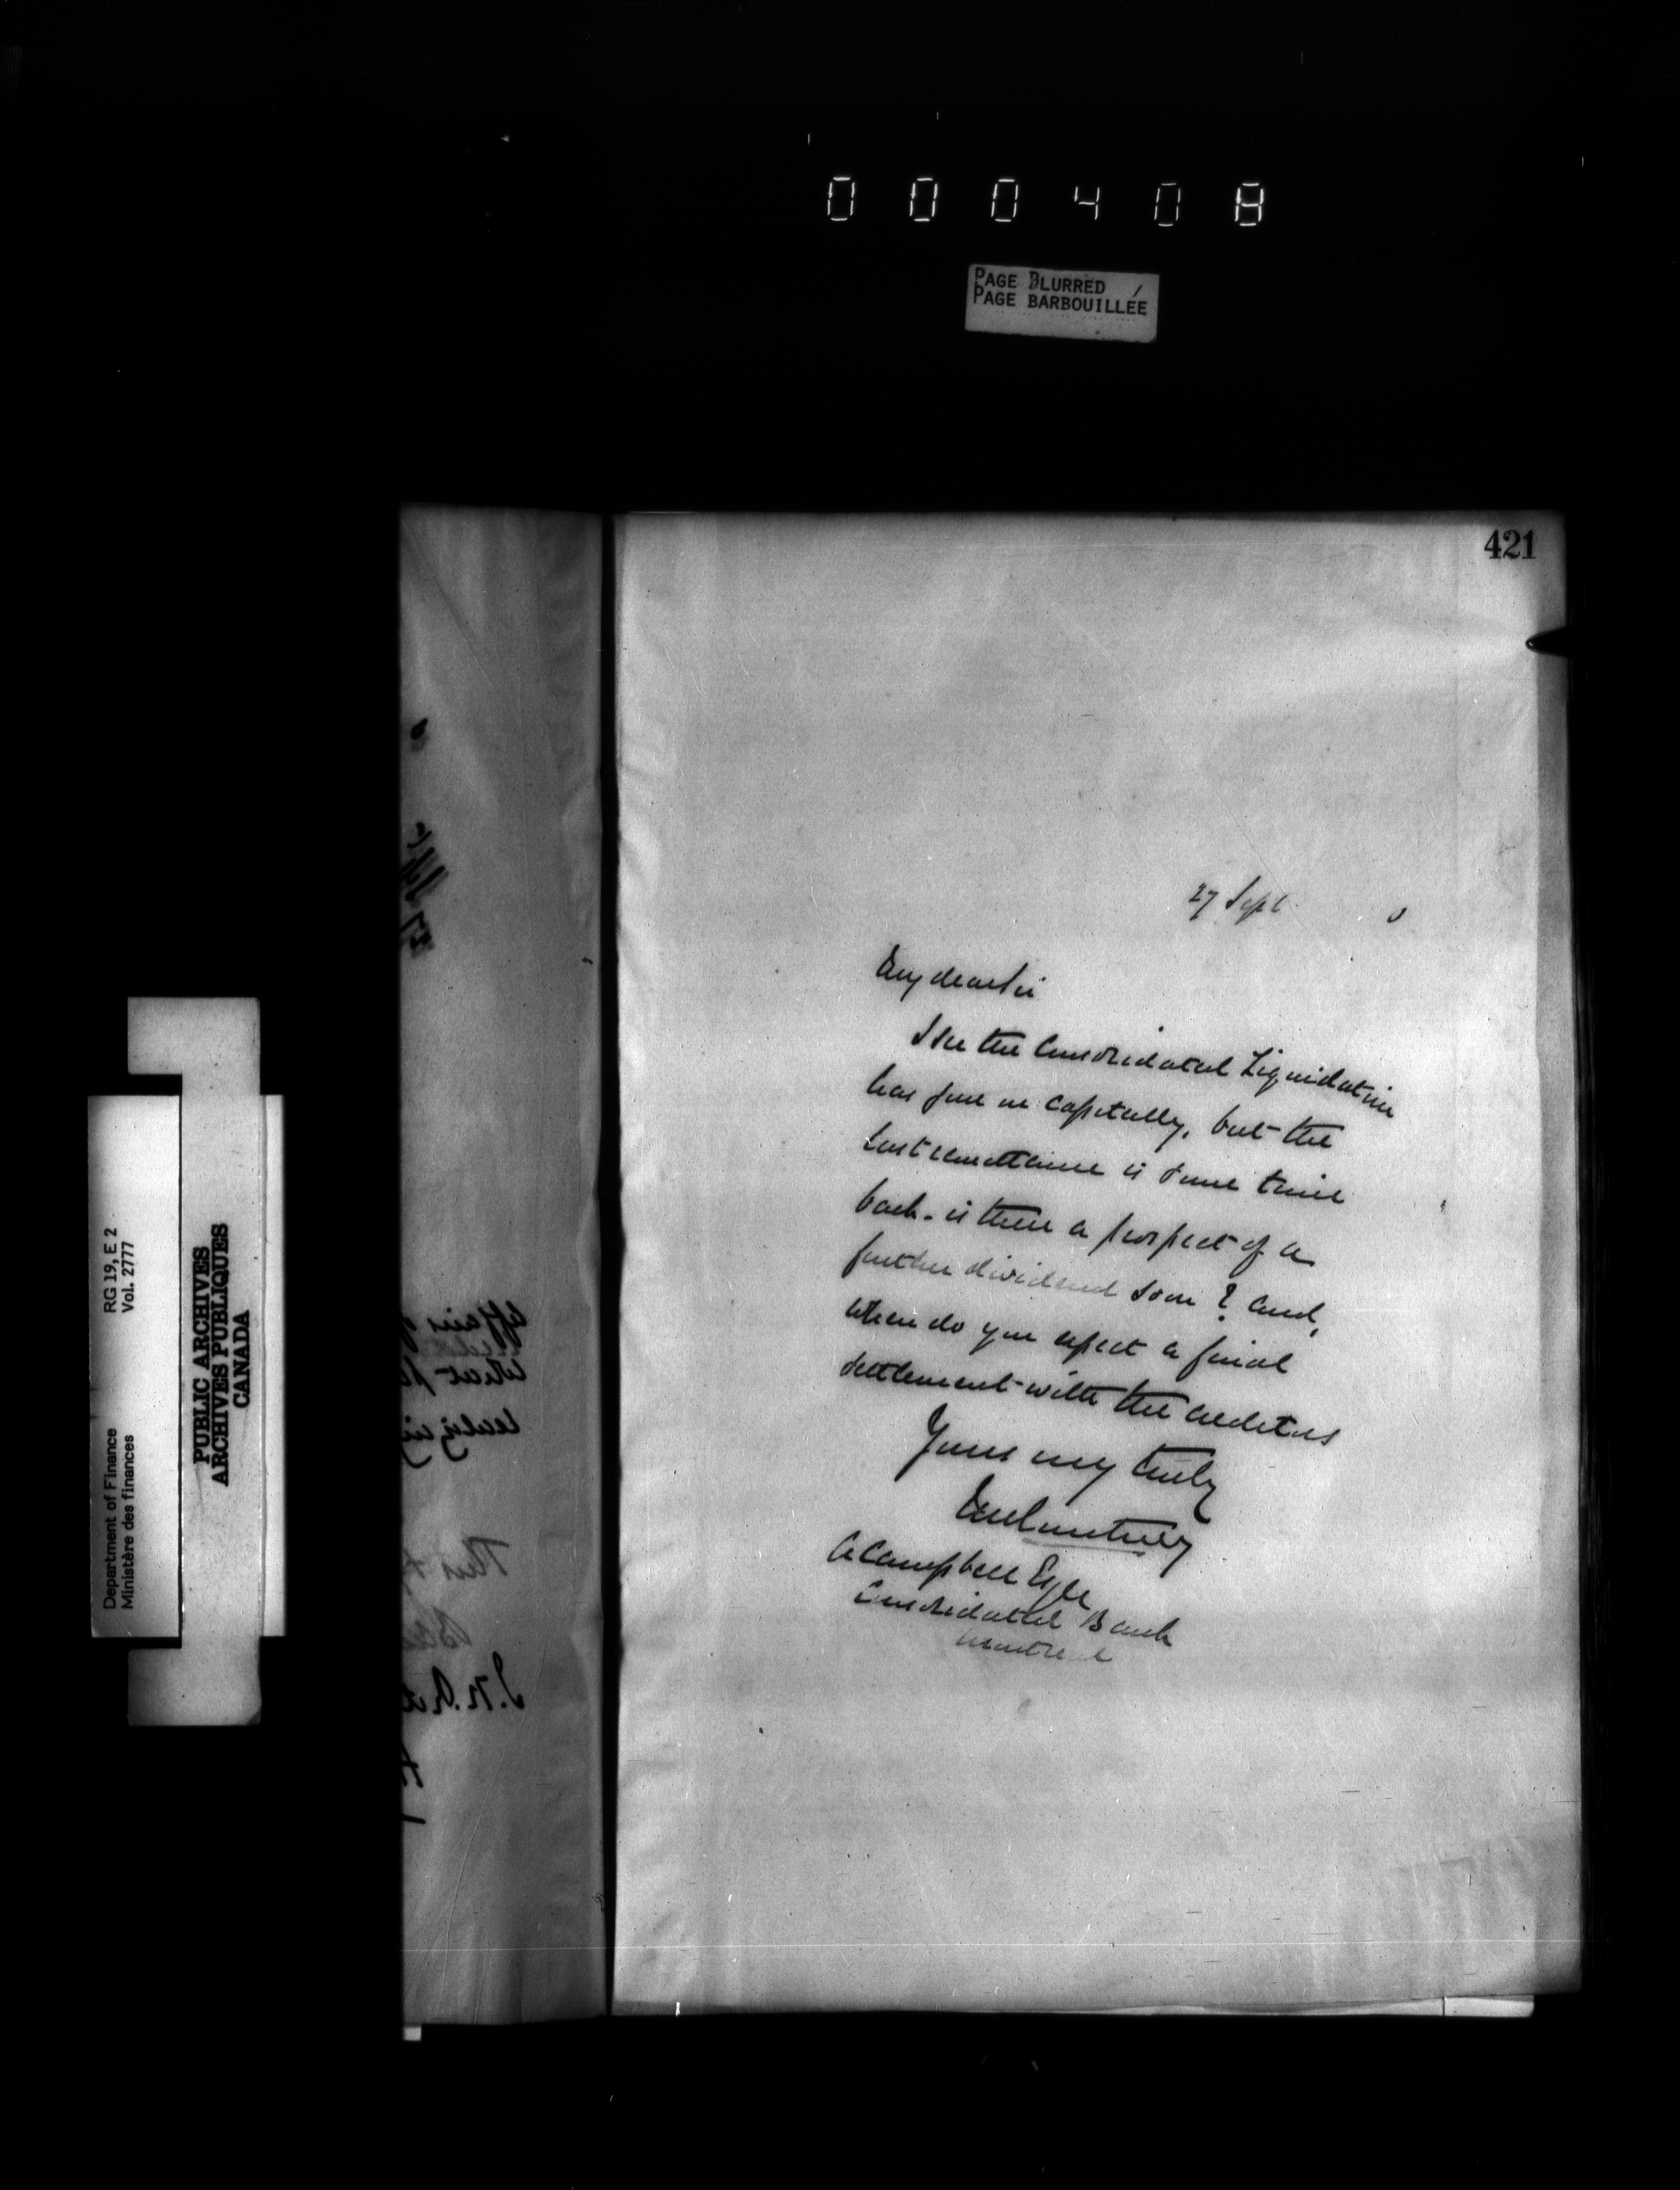 000408
PAGE BLURRED
PAGE BARBOUILLÉE
421
27 Sept 0
My dear Sir
I see the Consolidated Liquidation
has gone on capitally, but the
last remittance is some time
back - is there a prospect of a
further dividend soon? and,
when do you expect a final
settlement with the creditors
Yours very truly
JM Courtney
A Campbell Esqre
Consolidated Bank
Montreal
Department of Finance RG 19, E 2
Ministère des finances Vol. 2777
PUBLIC ARCHIVES
ARCHIVES PUBLIQUES
CANADA